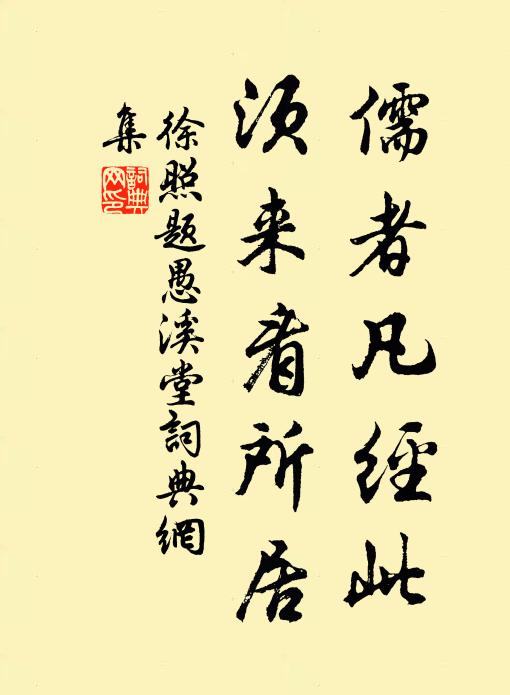 儒者凡經此
須来看所居
徐照题愚溪堂詞典網
集
詞典网印